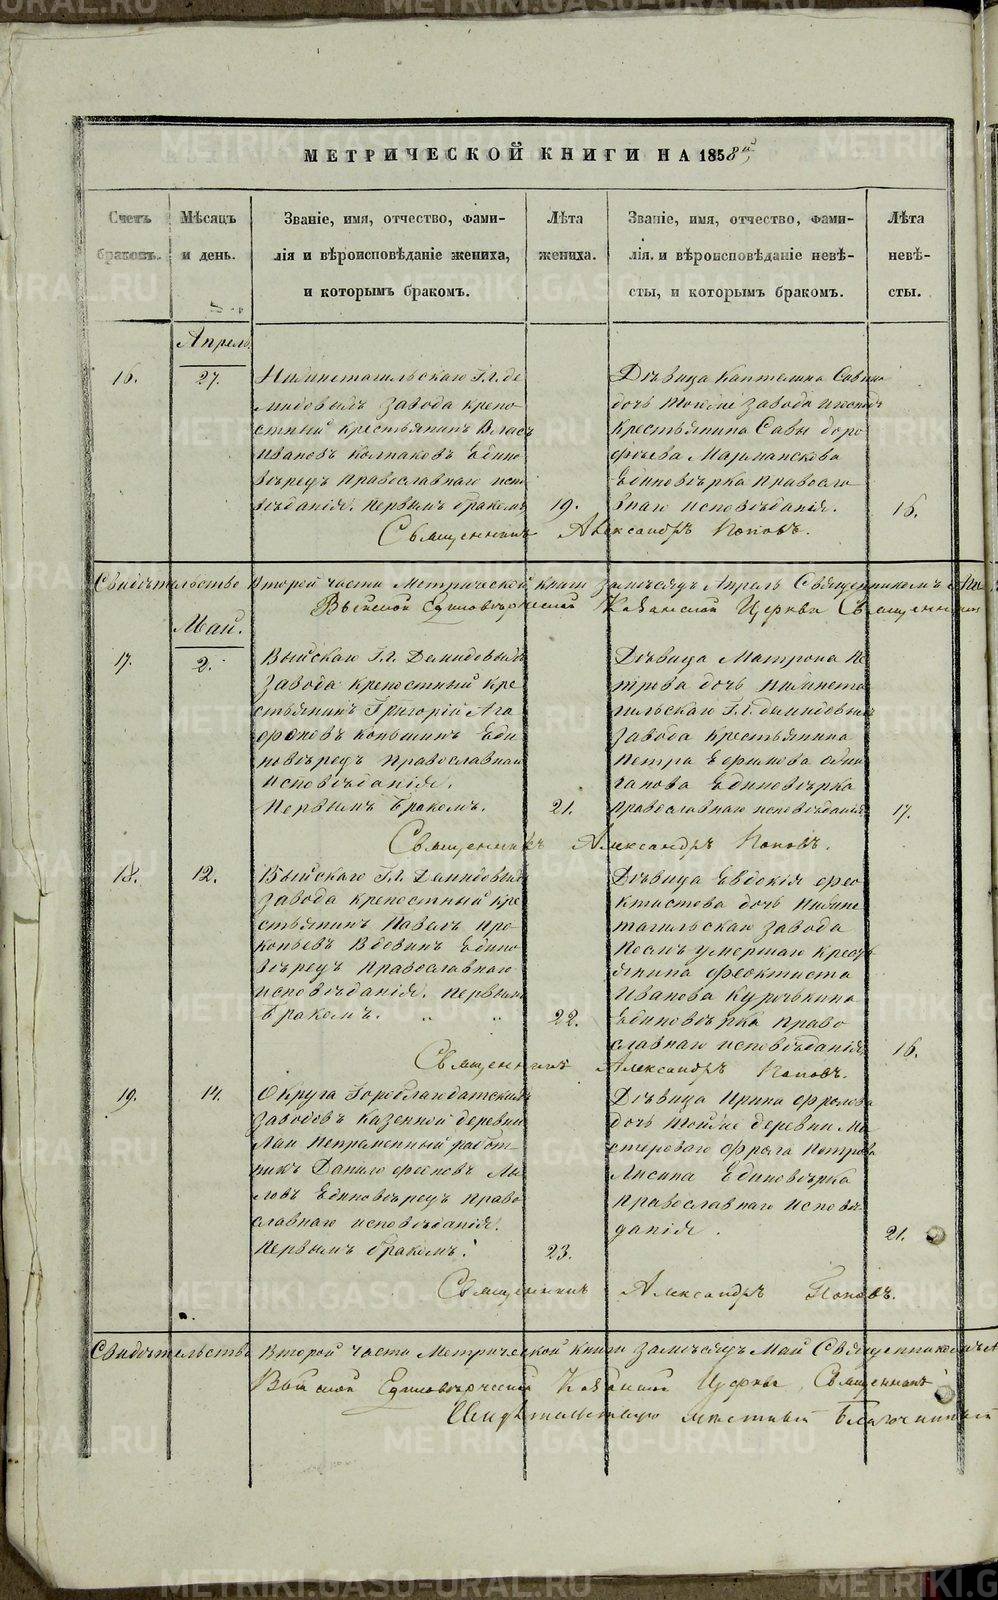 МЕТРИЧЕСКОЙ КНИГИ НА 1858й
Счетъ браковъ.
Мѣсяцъ и день.
Званіе, имя, отчество, фами-
лія и вѣроисповѣданіе жениха,
и которымъ бракомъ.
Лѣта жениха.
Званіе, имя, отчество, фами-
лія. и вѣроисповѣданіе невѣ-
сты, и которымъ бракомъ.
Лѣта невѣ-
сты.
Апрель
16.
27.
Нижнетагильскаго Г.г. де
мидовыхъ завода крепо
стный крестьянинъ Власъ
Ивановъ Колпаковъ Едино
вѣрецъ Православнаго испо
вѣданія. Первымъ бракомъ
19.
Дѣвица Капиталина Савина
дочь тогоже завода
Крестьянина Савы доро
фѣева
Единовѣрка Правосла
внаго исповѣданія.
16.
Священникъ Александръ Поповъ.
Свидѣтельство Второй части Метрической книги за мѣсяцъ Апрель Священникомъ
Выйской Единовѣрческой Церкви Священникъ
Май.
17.
2.
Выйскаго Г.г. Демидовыхъ
завода крепостный кре
стьянинъ Григорій Ага
фоновъ Копышинъ Еди
новѣрецъ Православнаго
исповѣданія.
Первымъ бракомъ.
21.
Дѣвица Матрона Пе
трова дочь Нижнета
гильскаго Г.г. демидовыхъ
завода крестьянина
Петра Ефимова
Единовѣрка
Православнаго исповѣданія
17.
Священникъ Александръ Поповъ.
18.
12.
Выйскаго Г.г. Демидовыхъ
завода крепостный кре
стьянинъ Павелъ Про
копьевъ Вдовинъ Едино
вѣрецъ Православнаго
исповѣданія. Первымъ
бракомъ. „ „
22.
Дѣвица Евдокія Фео
ктистова дочь Нижне
тагильскаго завода
Послѣ умершаго крест
янина Феоктиста
Иванова Курочкина
Единовѣрка Право
славнаго исповѣданія
16.
Священникъ Александръ Поповъ.
19.
14.
Округа Гороблагодатскихъ
заводовъ казенной деревни
Лаи Непременный работ
никъ Данило Феоновъ
Единовѣрецъ Право
славнаго исповѣданія.
Первымъ бракомъ.
23.
Дѣвица Ирина Фролова
дочь тойже деревни Ма
стероваго Фрола Петрова
Лисина Единовѣрка
Православнаго исповѣ
данія.
21.
Священникъ Александръ Поповъ.
Свидѣтельство Второй части Метрической книги за мѣсяцъ Май Священникомъ
Выйской Единовѣрческой Церкви Священникъ
мѣстный Благочинный
METRIKI.GASO-URAL.RU